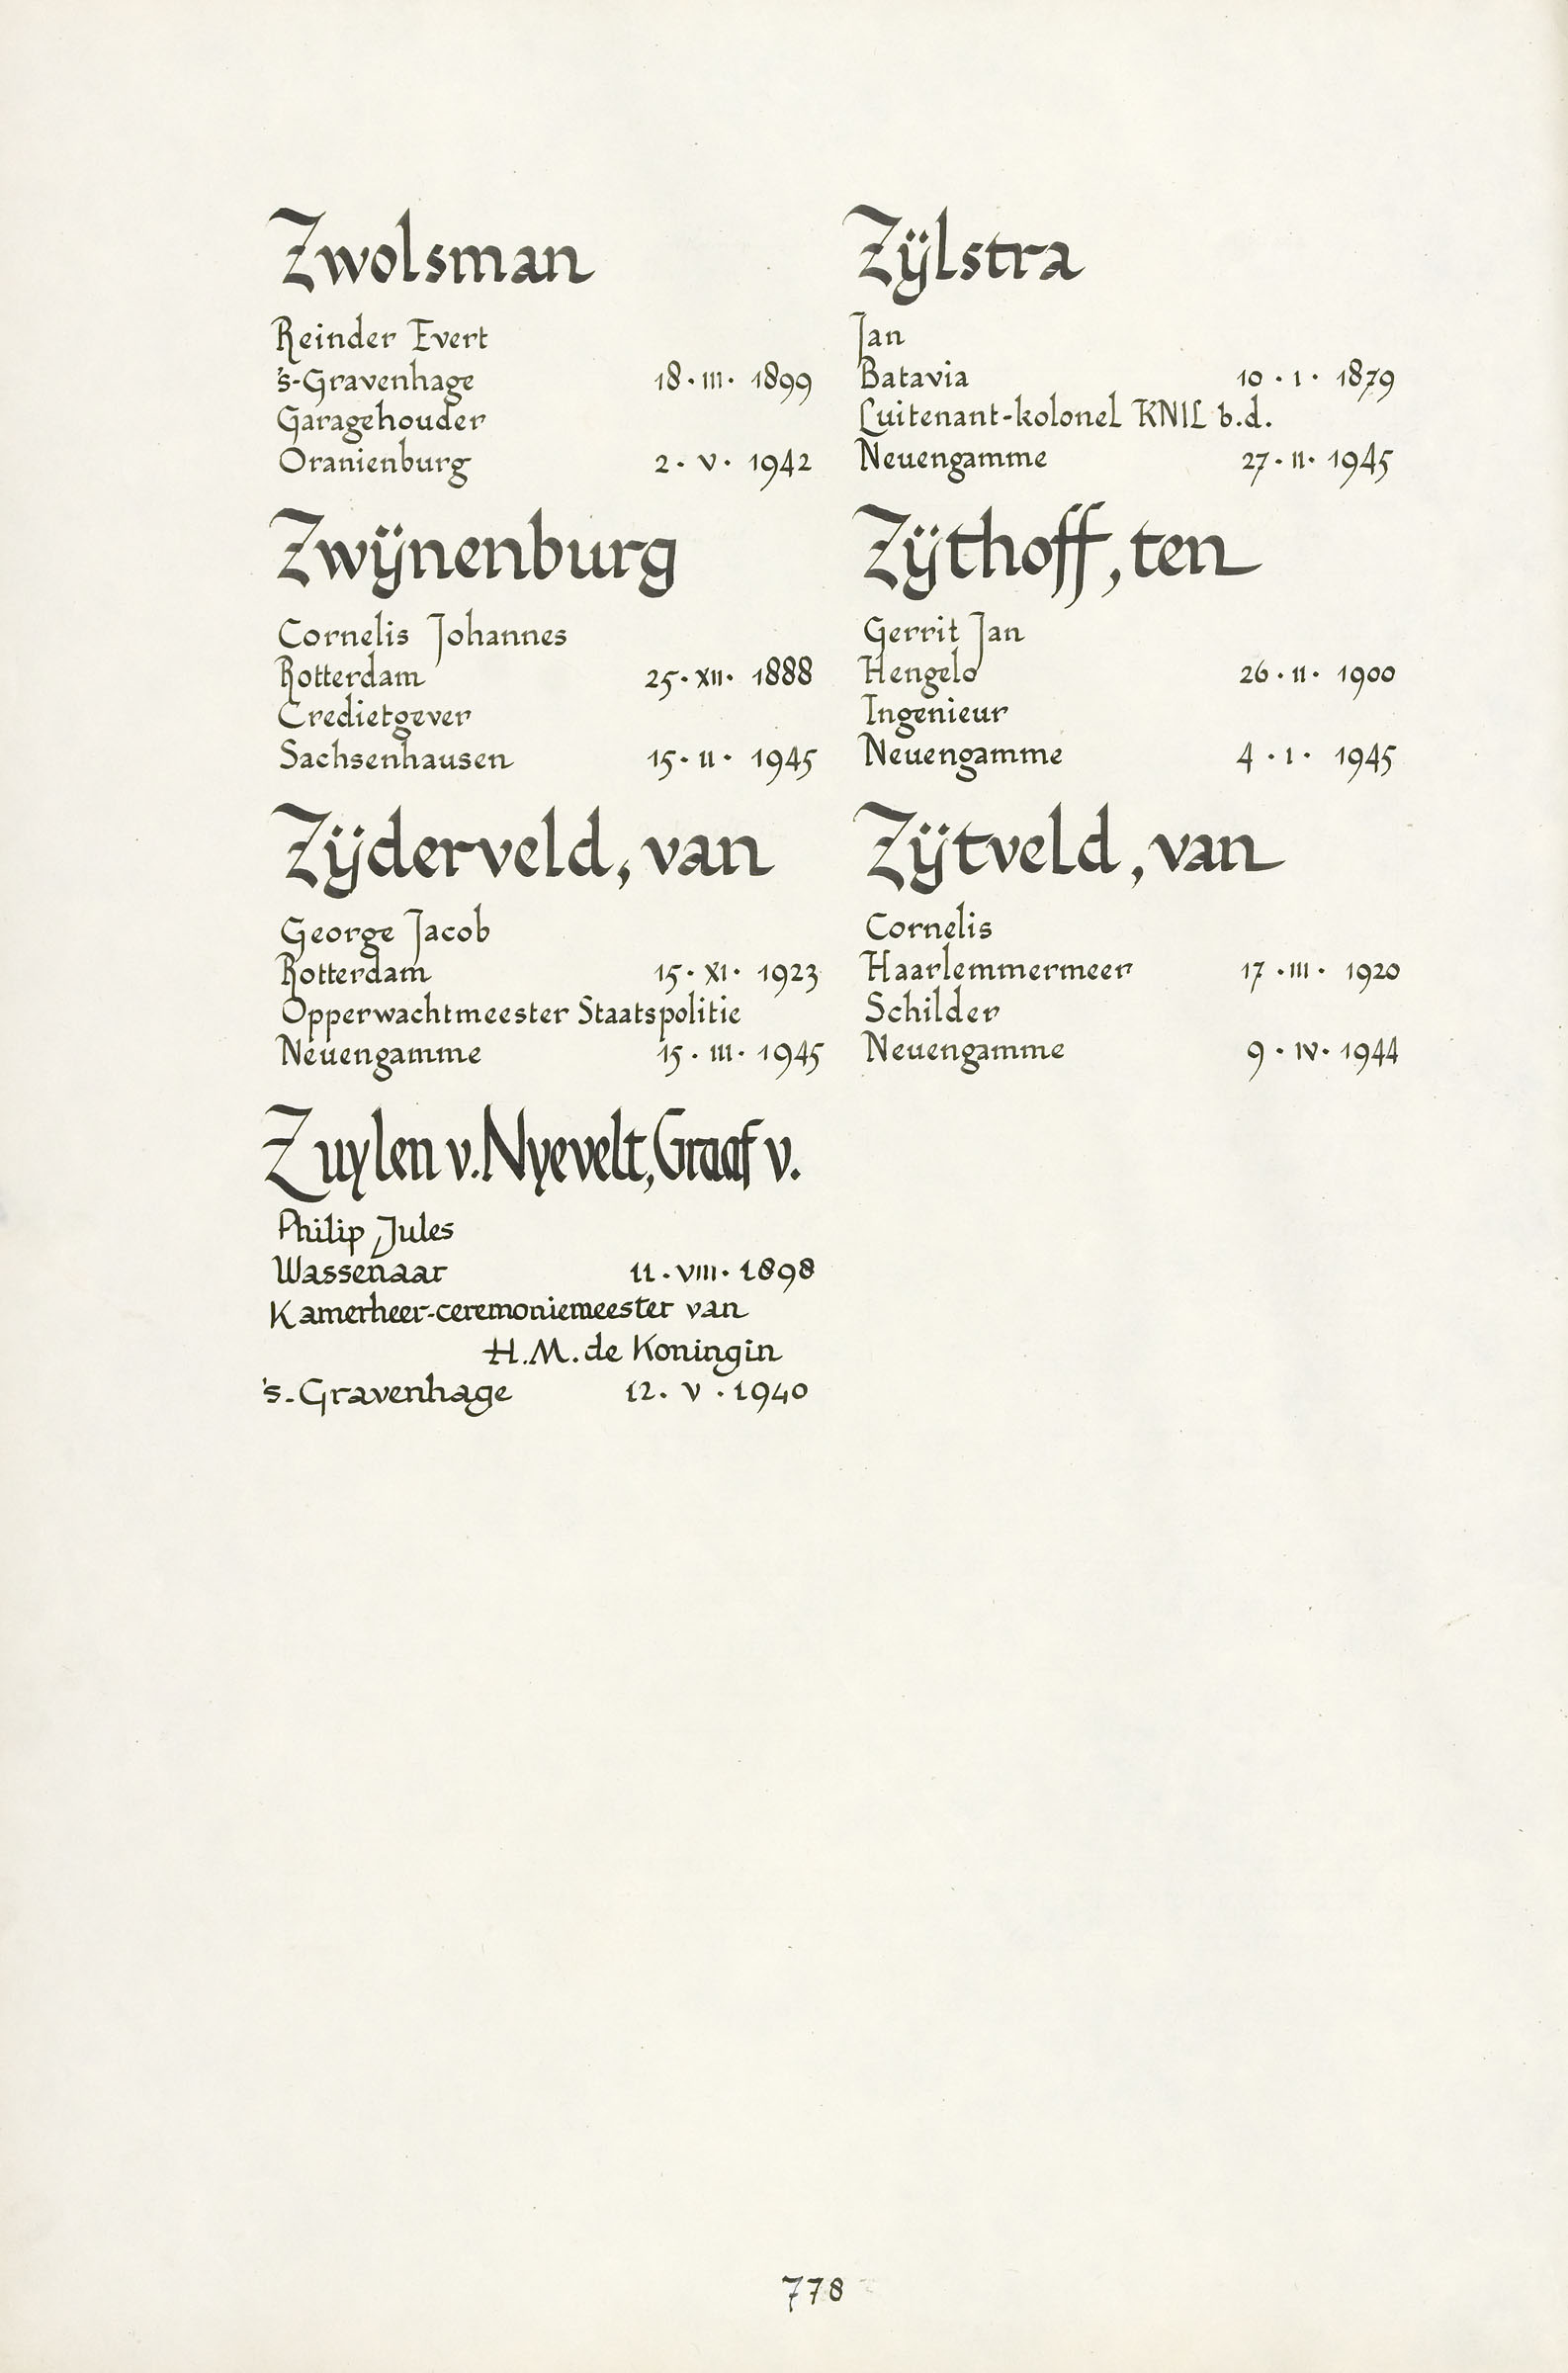 Zwolsman
Reinder Evert
's-Gravenhage 18·III· 1899
Garagehouder
Oranienburg 2·V· 1942
Zwÿnenburg
Cornelis Johannes
Rotterdam 25·XII· 1888
Credietgever
Sachsenhausen 15·II· 1945
Zÿderveld, van
George Jacob
Rotterdam 15·XI· 1923
Opperwachtmeester Staatspolitie
Neuengamme 15·III· 1945
Zuylen v. Nyevelt, Graaf v.
Philip Jules
Wassenaar 11·VIII· 1898
Kamerheer-ceremoniemeester van
H.M. de Koningin
's-Gravenhage 12·V·1940
Zÿlstra
Jan
Batavia 10·I· 1879
Luitenant-kolonel KNIL b.d.
Neuengamme 27·II· 1945
Zÿthoff, ten
Gerrit Jan
Hengelo 26·II· 1900
Ingenieur
Neuengamme 4·I· 1945
Zÿtveld, van
Cornelis
Haarlemmermeer 17·III· 1920
Schilder
Neuengamme 9·IV· 1944
778